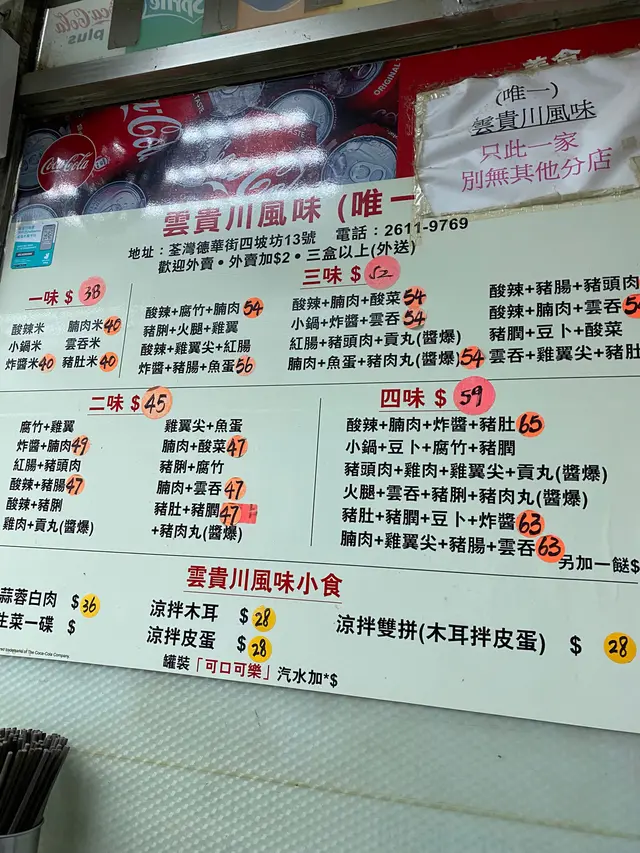 Coca-Cola plus
Sprite
ORIGINAL
(唯一)
雲貴川風味
只此一家
別無其他分店
Coca-Cola
雲貴川風味 (唯一
地址：荃灣德華街四坡坊13號 電話：2611-9769
歡迎外賣・外賣加$2・三盒以上(外送)
一味 $ 38
酸辣米 腩肉米 40
小鍋米 雲吞米
炸醬米 40 豬肚米 40
三味 $ 52
酸辣+腐竹+腩肉 54
豬脷+火腿+雞翼
酸辣+雞翼尖+紅腸
炸醬+豬腸+魚蛋 56
酸辣+腩肉+酸菜 54
小鍋+炸醬+雲吞 54
紅腸+豬頭肉+貢丸(醬爆)
腩肉+魚蛋+豬肉丸(醬爆) 54
酸辣+豬腸+豬頭肉
酸辣+腩肉+雲吞 54
豬膶+豆卜+酸菜
雲吞+雞翼尖+豬肚
二味 $ 45
腐竹+雞翼
炸醬+腩肉 49
紅腸+豬頭肉
酸辣+豬腸 47
酸辣+豬脷
雞肉+貢丸(醬爆)
雞翼尖+魚蛋
腩肉+酸菜 47
豬脷+腐竹
腩肉+雲吞 47
豬肚+豬膶 47
+豬肉丸(醬爆)
四味 $ 59
酸辣+腩肉+炸醬+豬肚 65
小鍋+豆卜+腐竹+豬膶
豬頭肉+雞肉+雞翼尖+貢丸(醬爆)
火腿+雲吞+豬脷+豬肉丸(醬爆)
豬肚+豬膶+豆卜+炸醬 63
腩肉+雞翼尖+豬腸+雲吞 63
另加一餸$
雲貴川風味小食
蒜蓉白肉 $ 36
生菜一碟 $
涼拌木耳 $ 28
涼拌皮蛋 $ 28
涼拌雙拼(木耳拌皮蛋) $ 28
罐裝「可口可樂」汽水加*$
trademark of The Coca-Cola Company